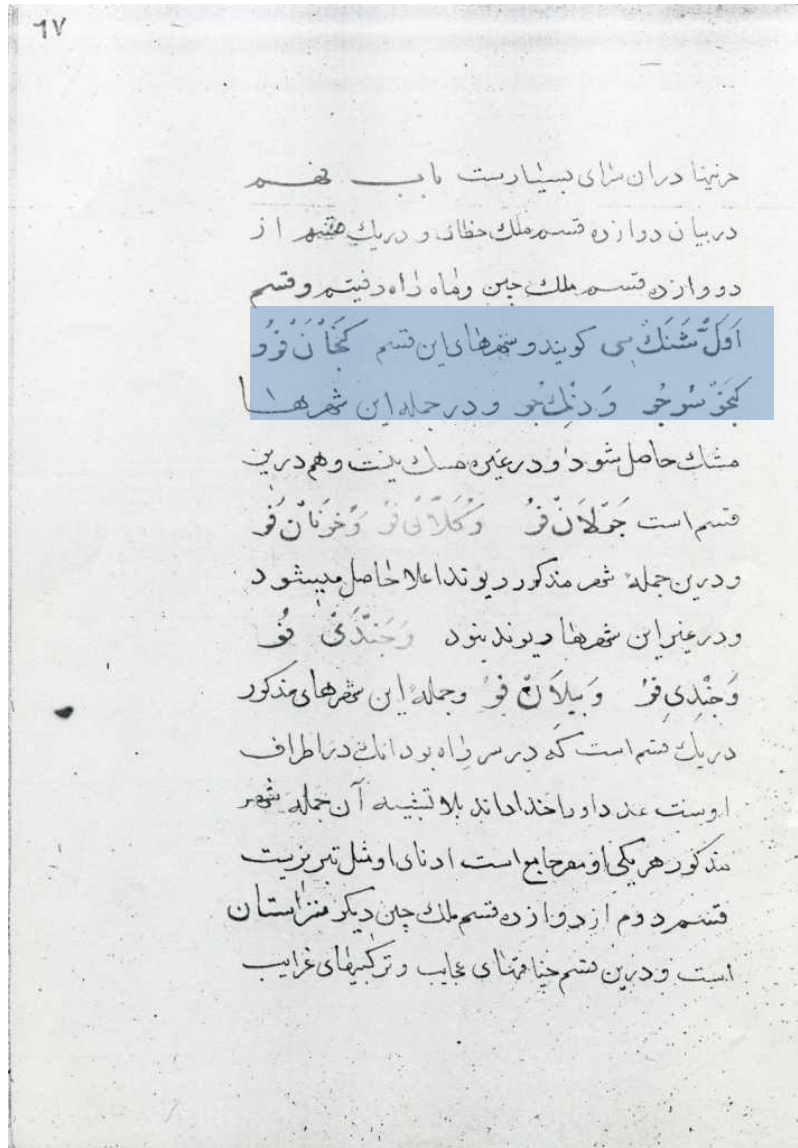 ٦٧
در ان سرای بسیارست باب نهم
در بیان دوازده قسم ملک خطای و در یک از
دووازده قسم ملک چین راه رفتیم و قسم
اول شنک می کویند و شهرهای این قسم کنجان فو و
کنجو سوجو و دنک جو و در جمله این شهرها
مشك حاصل شود و در غیره مسك نیست و هم درین
قسم است جولان فو و کلانی فو و خونان فو
و درین جمله شهر مذکور ریوند اعلا حاصل میشود
و در غیر این شهرها ریوند نبود و جندی فو
و جندی فو و بیلان فو و جمله این شهرهای مذکور
در یک قسم است که در سر راه بود انک در اطراف
اوست عدد او را خدا داند بلا تشبیه آن جمله شهر
مذکور هر یکی از مصر جامع است ادنای او مثل تبریزیت
قسم دوم از دوازده قسم ملک چین دیکر
است و درین قسم عجایب و ترکیبهای غرایب